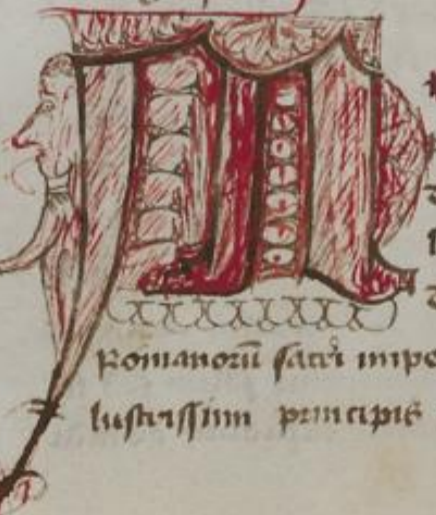 Romanorū sacri impe
lustrissim principis